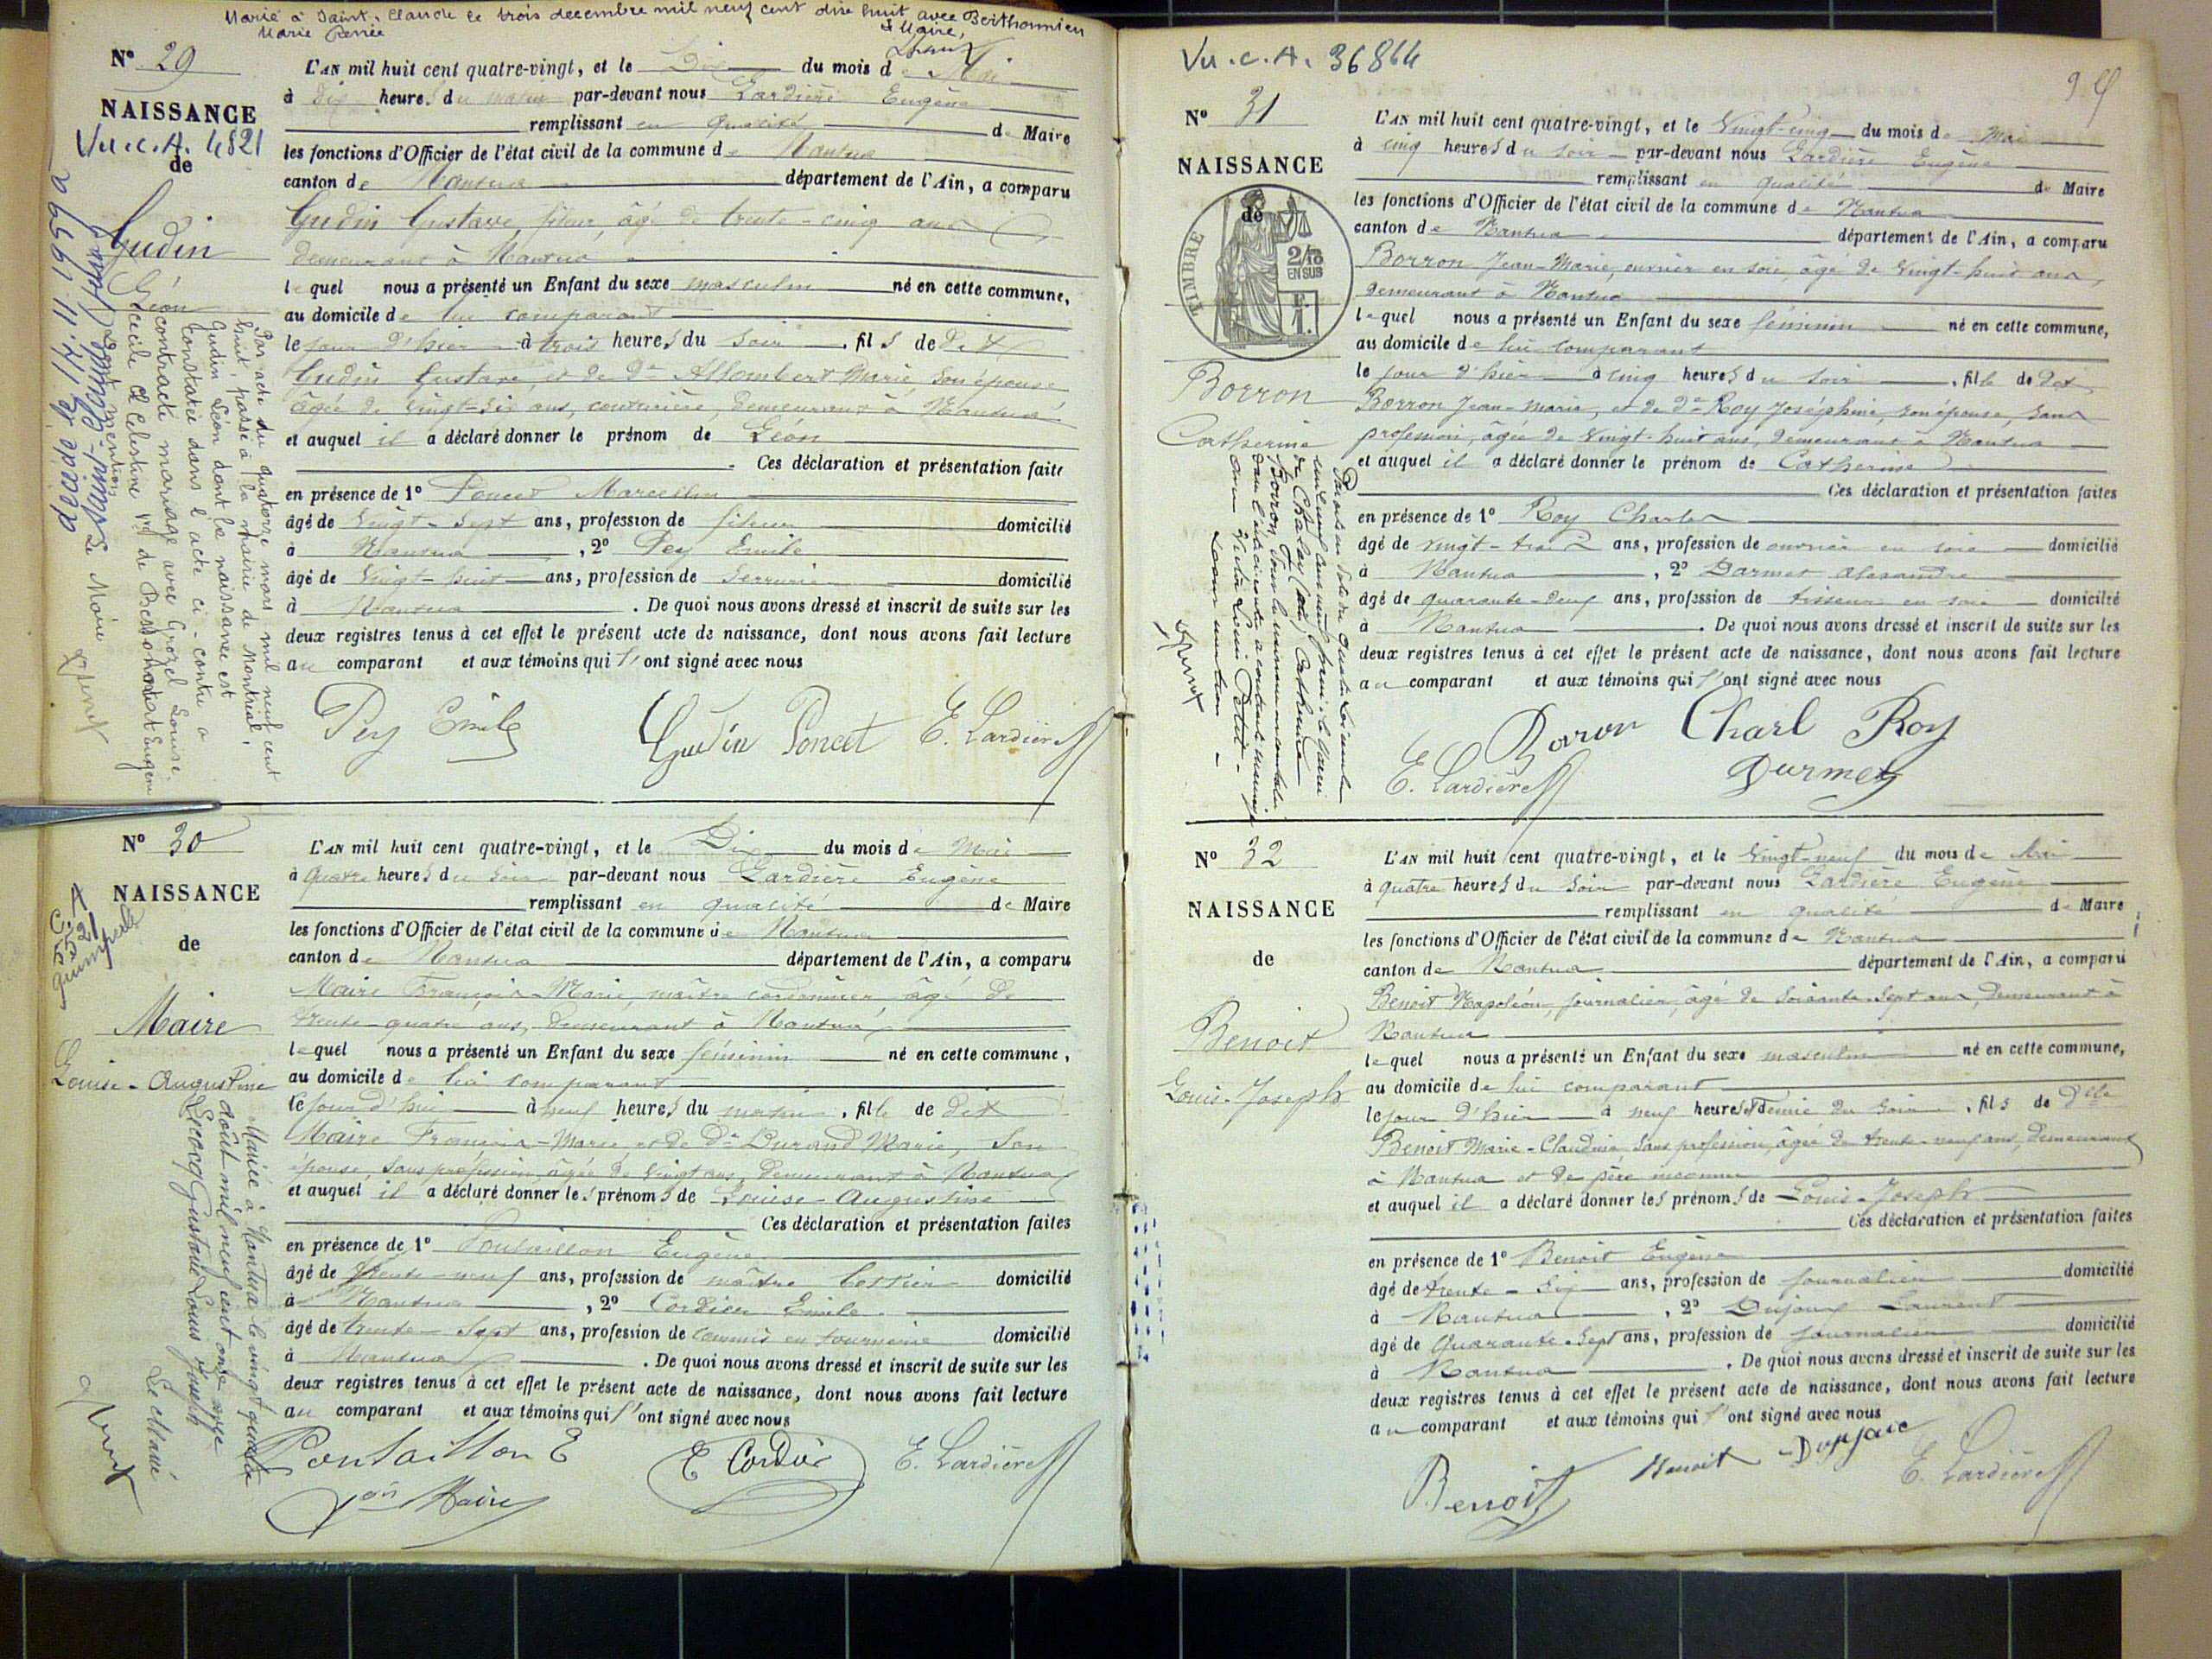 Marié à Saint-Claude le trois decembre mil neuf cent dix huit avec Berthonnier
Marie Renée
Le Maire,
Nº 29
NAISSANCE
Vu.c.A. 4821
de
Gudin
Léon
L'AN mil huit cent quatre-vingt, et le Dix du mois de Mai
à dix heures du matin par-devant nous Lardière Eugène
remplissant en qualité de Maire
les fonctions d'Officier de l'état civil de la commune de Nantua
canton de Nantua département de l'Ain, a comparu
Gudin Gustave, fileur, âgé de trente-cinq ans
demeurant à Nantua
lequel nous a présenté un Enfant du sexe masculin né en cette commune,
au domicile de lui comparant
le jour d'hier à trois heures du soir, fils de dit
Gudin Gustave, et de De Allombert Marie, son épouse
âgée de vingt-six ans, couturière, demeurant à Nantua
et auquel il a déclaré donner le prénom de Léon
Ces déclaration et présentation faite
en présence de 1º Poncet Marcellin
âgé de vingt-sept ans, profession de fileur domicilié
à Nantua, 2º Pey Emile
âgé de vingt-huit ans, profession de serrurier domicilié
à Nantua. De quoi nous avons dressé et inscrit de suite sur les
deux registres tenus à cet effet le présent acte de naissance, dont nous avons fait lecture
au comparant et aux témoins qui l'ont signé avec nous
Pey Emile Gudin Poncet E. Lardière
Par acte du quatorze mars mil neuf cent
huit, passé à la mairie de Montréal,
Gudin Léon dont la naissance est
constatée dans l'acte ci-contre a
contracté mariage avec Grozel Louise
Cécile Célestine
Dont mention
Le Maire
décédé le 17.11.1959 à
Saint-Claude (Jura)
Nº 30
NAISSANCE
de
C.A
5521
quimper
Maire
Louise-Augustine
L'AN mil huit cent quatre-vingt, et le Dix du mois de Mai
à quatre heures du soir par-devant nous Lardière Eugène
remplissant en qualité de Maire
les fonctions d'Officier de l'état civil de la commune de Nantua
canton de Nantua département de l'Ain, a comparu
Maire François-Marie, maître cordonnier âgé de
trente-quatre ans, demeurant à Nantua
lequel nous a présenté un Enfant du sexe féminin né en cette commune,
au domicile de lui comparant
le jour d'hui à neuf heures du matin, fille de dit
Maire François-Marie et de De Durand Marie, son
épouse, sans profession, âgée de vingt ans, demeurant à Nantua
et auquel il a déclaré donner les prénoms de Louise-Augustine
Ces déclaration et présentation faites
en présence de 1º Pontaillon Eugène
âgé de trente-neuf ans, profession de maître domicilié
à Nantua, 2º Cordier Emile
âgé de trente-sept ans, profession de commis en domicilié
à Nantua. De quoi nous avons dressé et inscrit de suite sur les
deux registres tenus à cet effet le présent acte de naissance, dont nous avons fait lecture
au comparant et aux témoins qui l'ont signé avec nous
Pontaillon E E Cordier E. Lardière
Maire
Mariée à Nantua le vingt quatre
août mil neuf cent onze avec
Lecocq Gustave Louis Joseph
Le Maire
Vu.c.A. 36864
Nº 31
NAISSANCE
de
TIMBRE
2/10
EN SUS
Borron
Catherine
L'AN mil huit cent quatre-vingt, et le Vingt-cinq du mois de Mai
à cinq heures du soir par-devant nous Lardière Eugène
remplissant en qualité de Maire
les fonctions d'Officier de l'état civil de la commune de Nantua
canton de Nantua département de l'Ain, a comparu
Borron Jean-Marie, ouvrier en soie, âgé de vingt-huit ans,
demeurant à Nantua
lequel nous a présenté un Enfant du sexe féminin né en cette commune,
au domicile de lui comparant
le jour d'hier à cinq heures du soir, fille de dit
Borron Jean-Marie, et de De Roy Joséphine, son épouse, sans
profession, âgée de vingt-huit ans, demeurant à Nantua
et auquel il a déclaré donner le prénom de Catherine
Ces déclaration et présentation faites
en présence de 1º Roy Charles
âgé de vingt-trois ans, profession de ouvrier en soie domicilié
à Nantua, 2º Darmet Alexandre
âgé de quarante-deux ans, profession de tisseur en soie domicilié
à Nantua. De quoi nous avons dressé et inscrit de suite sur les
deux registres tenus à cet effet le présent acte de naissance, dont nous avons fait lecture
au comparant et aux témoins qui l'ont signé avec nous
Boron Charl Roy
E. Lardière Durmet
Nº 32
NAISSANCE
de
Benoit
Louis-Joseph
L'AN mil huit cent quatre-vingt, et le Vingt-neuf du mois de Mai
à quatre heures du soir par-devant nous Lardière Eugène
remplissant en qualité de Maire
les fonctions d'Officier de l'état civil de la commune de Nantua
canton de Nantua département de l'Ain, a comparu
Benoit Napoléon, journalier, âgé de soixante-sept ans, demeurant à
Nantua
lequel nous a présenté un Enfant du sexe masculin né en cette commune,
au domicile de lui comparant
le jour d'hier à neuf heures et demie du soir, fils de Delle
Benoit Marie-Claudine, sans profession, âgée de trente-neuf ans, demeurant
à Nantua et de père inconnu
et auquel il a déclaré donner les prénoms de Louis-Joseph
Ces déclaration et présentation faites
en présence de 1º Benoit Eugène
âgé de trente-six ans, profession de journalier domicilié
à Nantua, 2º Dujoux Laurent
âgé de quarante-sept ans, profession de journalier domicilié
à Nantua. De quoi nous avons dressé et inscrit de suite sur les
deux registres tenus à cet effet le présent acte de naissance, dont nous avons fait lecture
au comparant et aux témoins qui l'ont signé avec nous
Benoit Benoit E. Lardière